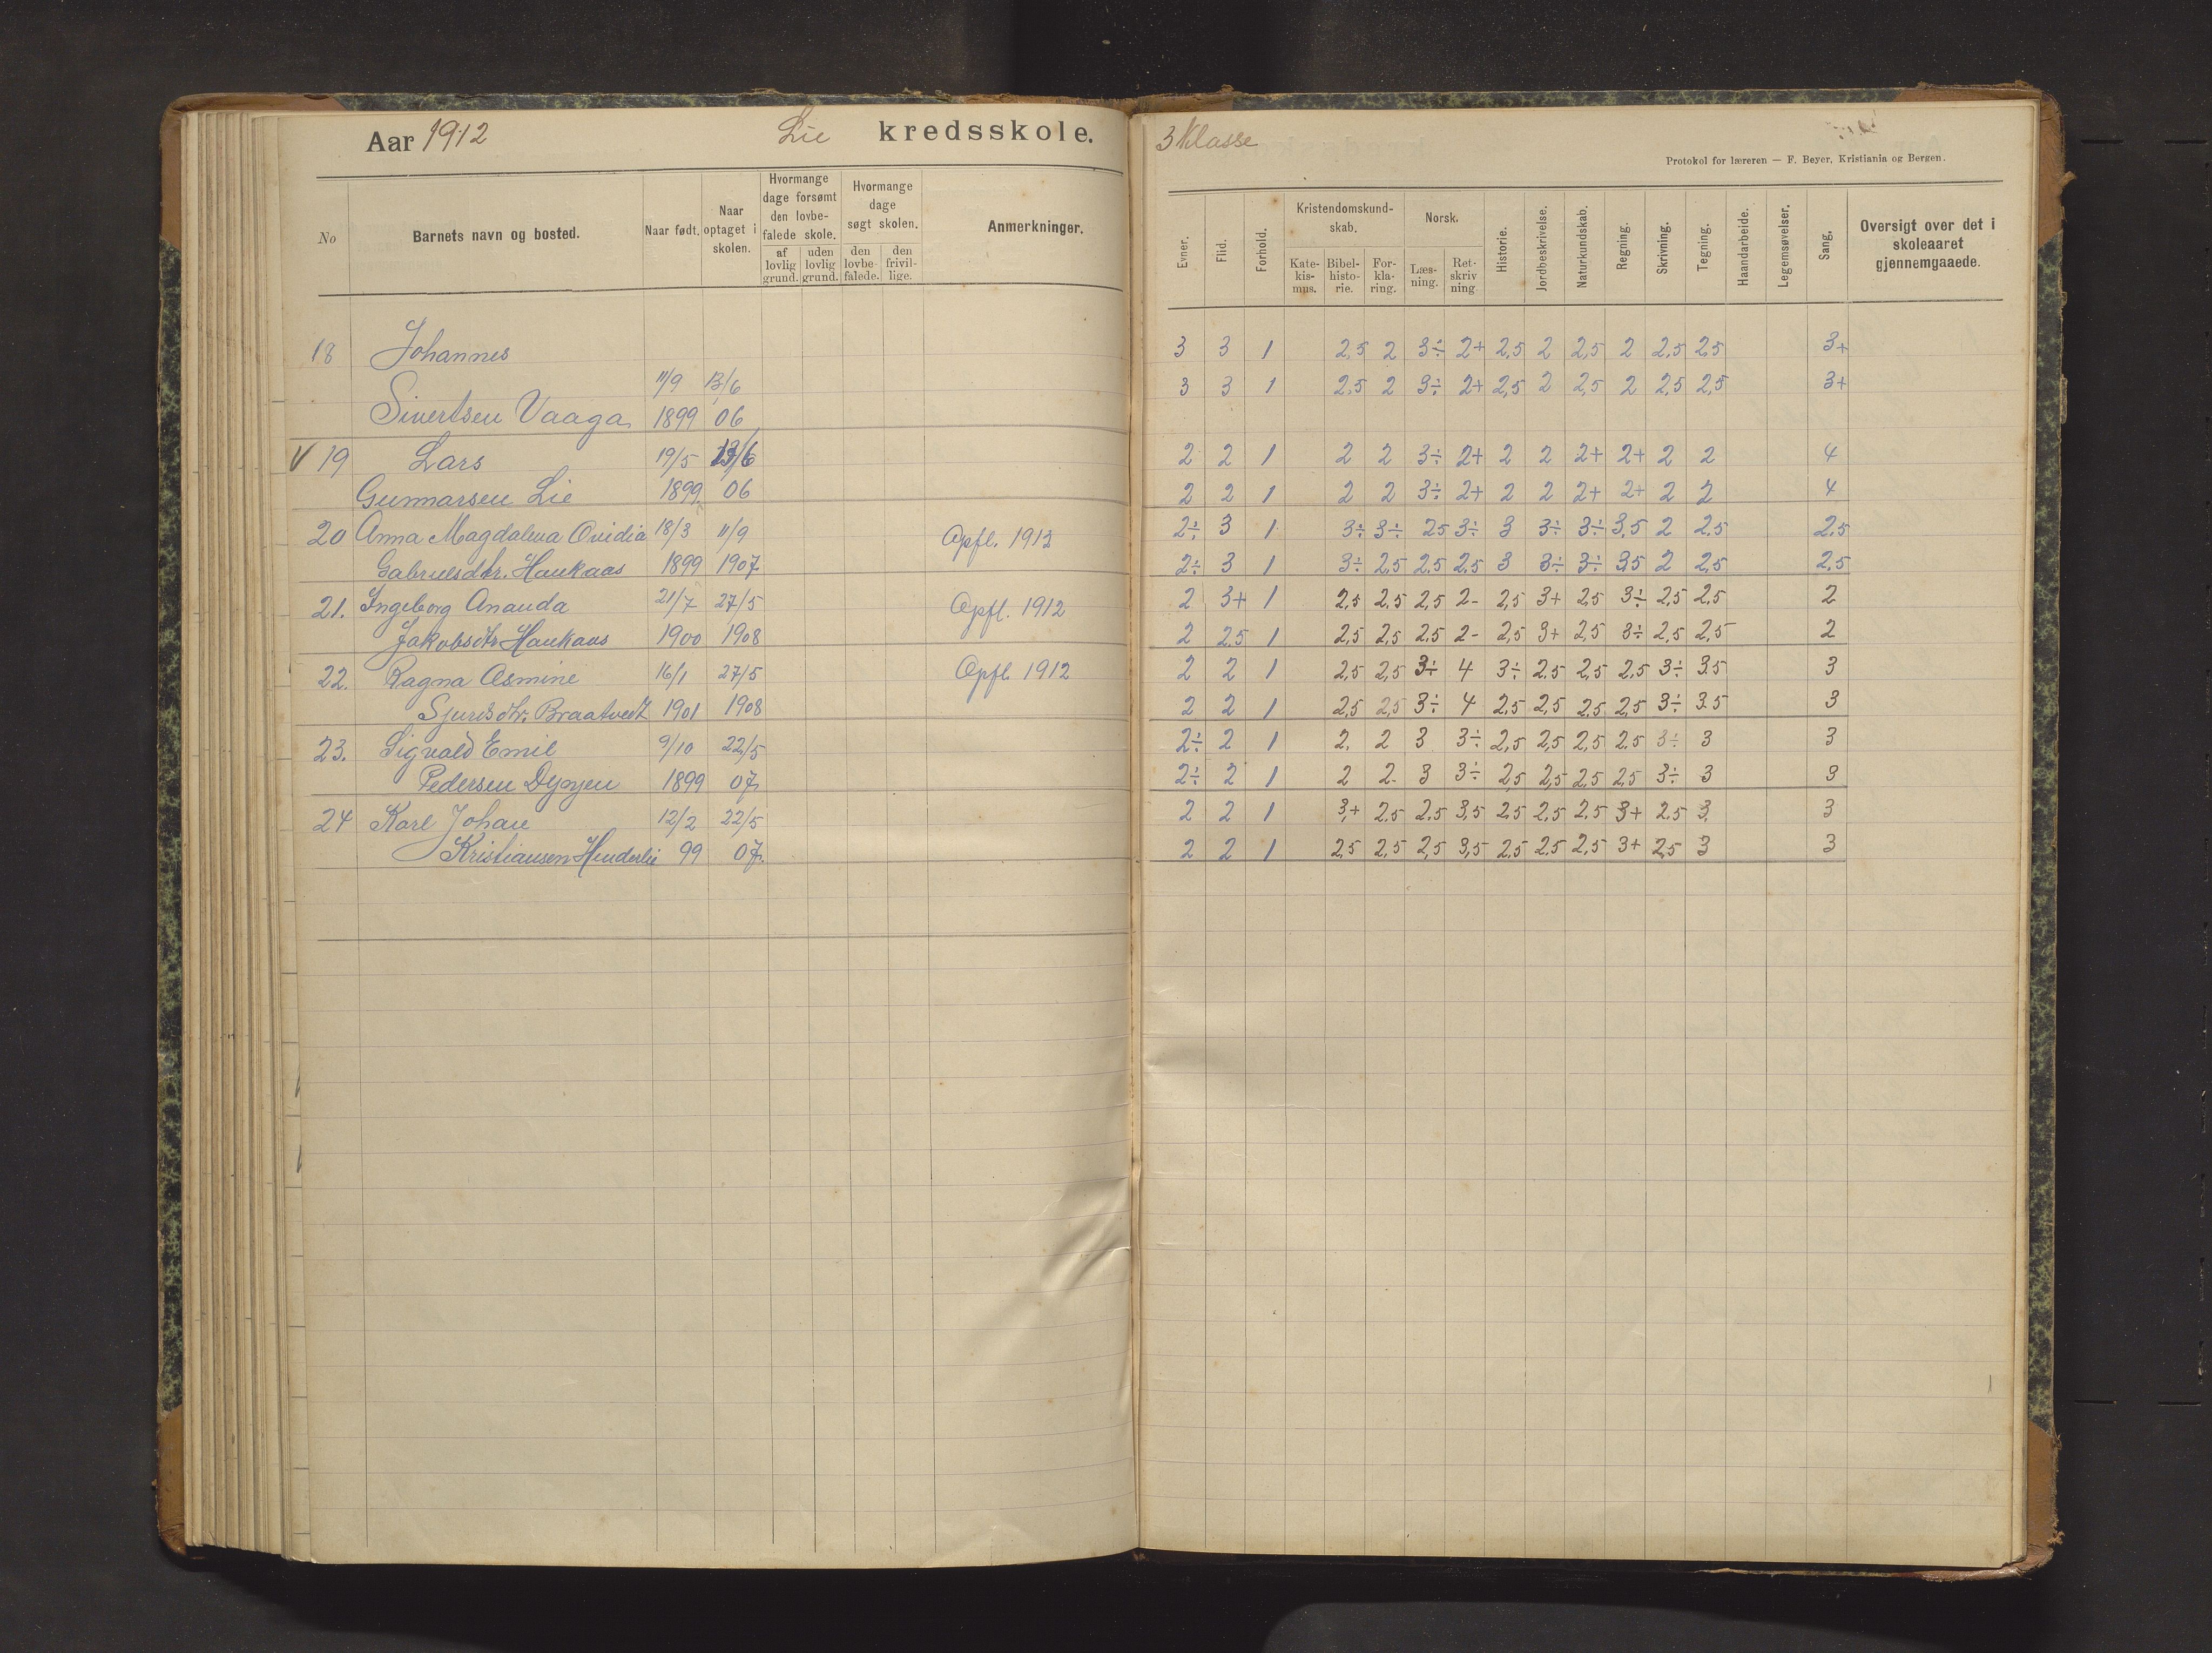 Aar 1912 Lie kredsskole.
No
Barnets navn og bosted.
Naar født.
Naar optaget i skolen.
Hvormange dage forsømt den lovbefalede skole.
af lovlig grund.
uden lovlig grund.
Hvormange dage søgt skolen.
den lovbefalede.
den frivillige.
Anmerkninger.
18 Johannes
11/9 13/6
Sivertsen Vaaga 1899 06
V 19 Lars 19/5 13/6
Gunnarsen Lie 1899 06
20 Anna Magdalena Ovidia 18/3 11/9 Opfl. 1912
Gabrielsdtr. Haukaas 1899 1907
21. Ingeborg Ananda 21/7 27/5 Opfl. 1912
Jakobsdtr Haukaas 1900 1908
22. Ragna Asmine 16/1 27/5 Opfl. 1912
Sjursdtr. Braatvedt 1901 1908
23. Sigvald Emil 9/10 22/5
Pedersen Dyøyen 1899 07
24 Karl Johan 12/2 22/5
Kristiansen Hinderlie 99 07.
3 Klasse
Protokol for læreren — F. Beyer, Kristiania og Bergen.
Evner.
Flid.
Forhold.
Kristendomskundskab.
Katekismus.
Bibelhistorie.
Forklaring.
Norsk.
Læsning.
Retskrivning
Historie.
Jordbeskrivelse.
Naturkundskab.
Regning.
Skrivning.
Tegning.
Haandarbeide.
Legemsøvelser.
Sang.
Oversigt over det i skoleaaret gjennemgaaede.
3 3 1 2,5 2 3÷ 2+ 2,5 2 2,5 2 2,5 2,5 3+
3 3 1 2,5 2 3÷ 2+ 2,5 2 2,5 2 2,5 2,5 3+
2 2 1 2 2 3÷ 2+ 2 2 2+ 2+ 2 2 4
2 2 1 2 2 3÷ 2+ 2 2 2+ 2+ 2 2 4
2÷ 3 1 3÷ 3÷ 25 3÷ 3 3÷ 3÷ 3,5 2 2,5 2,5
2÷ 3 1 3÷ 2,5 2,5 2,5 3 3÷ 3÷ 35 2 2,5 2,5
2 3+ 1 2,5 2,5 2,5 2- 2,5 3+ 2,5 3÷ 2,5 2,5 2
2 2,5 1 2,5 2,5 2,5 2- 2,5 3+ 2,5 3÷ 2,5 2,5 2
2 2 1 2,5 2,5 3÷ 4 3÷ 2,5 2,5 2,5 3÷ 3,5 3
2 2 1 2,5 2,5 3÷ 4 2,5 2,5 2,5 2,5 3÷ 3,5 3
2÷ 2 1 2. 2 3 3÷ 2,5 2,5 2,5 2,5 3÷ 3 3
2÷ 2 1 2 2- 3 3÷ 2,5 2,5 2,5 2,5 3÷ 3 3
2 2 1 3+ 2,5 2,5 3,5 2,5 2,5 2,5 3+ 2,5 3 3
2 2 1 2,5 2,5 2,5 3,5 2,5 2,5 2,5 3+ 2,5 3 3